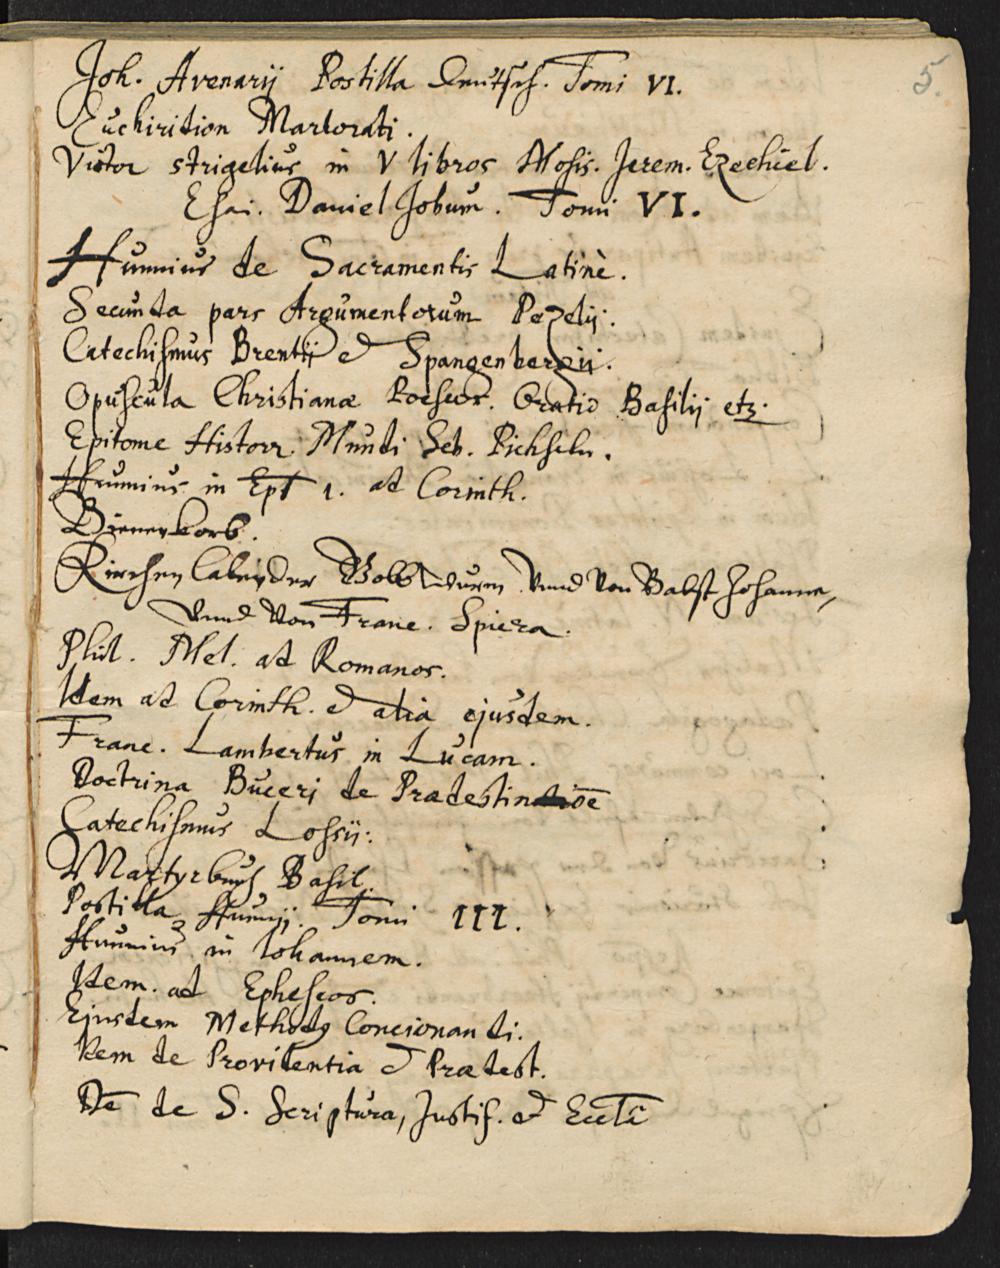 5.
Joh. Avenarij Postilla Deutsch. Tomi VI.
Euchiridion Marlorati.
Victor strigelius in V libros Mosis. Jerem. Ezechiel.
Esai. Daniel Jobum. Tomi VI.
Hunnius de Sacramentis Latinè.
Secunda pars Argumentorum Pezelij.
Catechismus Brentij et Spangenbergij.
Opuscula Christianæ Poeseos. Oratio Basilij etz.
Epitome Historr. Mundi Seb.
Hunnius in Ept 1. ad Corinth.
Bienenkorb.
Kirchen Calender Vnnd Von Babst Johanne,
Vnnd Von Franc. Spiera.
Phil. Mel. ad Romanos.
Idem ad Corinth. et alia ejusdem.
Franc. Lambertus in Lucam.
Doctrina Buceri de Prædestinatioē
Catechismus Lossij:
Martyrbuch Basil.
Postilla Hunnij. Tomi III.
Hunnius in Iohannem.
Idem. ad Ephesios.
Ejusdem Methodg Concionandi.
Idem de Providentia et Prædest.
Dē de S. Scriptura, Justif. et Eccli